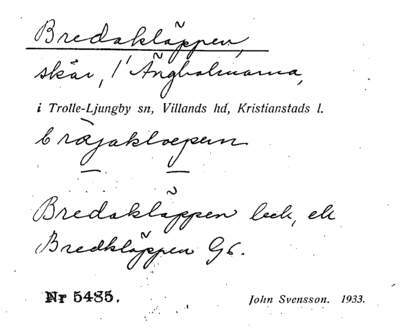 Bredakläppen,
skär, i Ängholmarna,
i Trolle-Ljungby sn, Villands hd, Kristianstads l.
Bredakläppen
Bredkläppen
Nr 5485.
John Svensson. 1933.